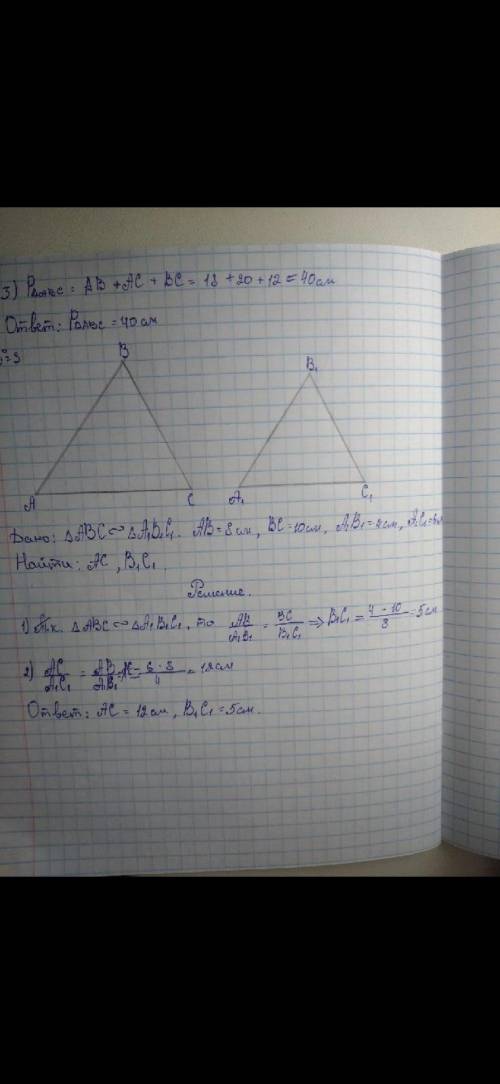 3) P△ABC = AB + AC + BC = 18 + 20 + 12 = 40см
Ответ: P△ABC = 40 см
B B₁
A C A₁ C₁
Дано: △ABC ∽ △A₁B₁C₁. AB = 8 см, BC = 10см, A₁B₁ = 4 см, A₁C₁ = 6
Найти: AC, B₁C₁
Решение.
1) Т.к. △ABC ∽ △A₁B₁C₁, то AB/A₁B₁ = BC/B₁C₁ ⇒ B₁C₁ = 4 · 10/8 = 5 см
2) AC/A₁C₁ = AB/A₁B₁ AC = 6 · 8/4 = 12 см
Ответ: AC = 12 см, B₁C₁ = 5 см.